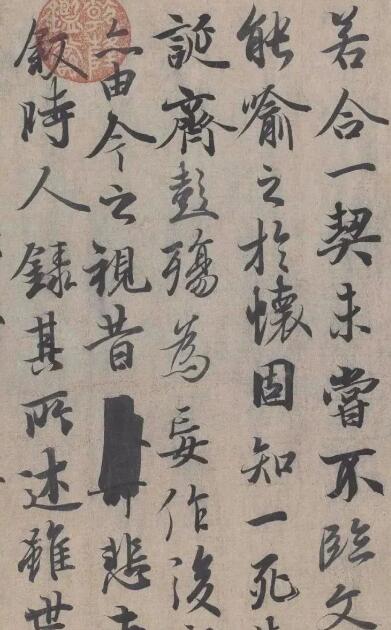 若合一契未嘗不臨文
能喻之於懷固知一死
誕齊彭殤為妄作後
亦由今之視昔悲夫
敘時人錄其所述雖世